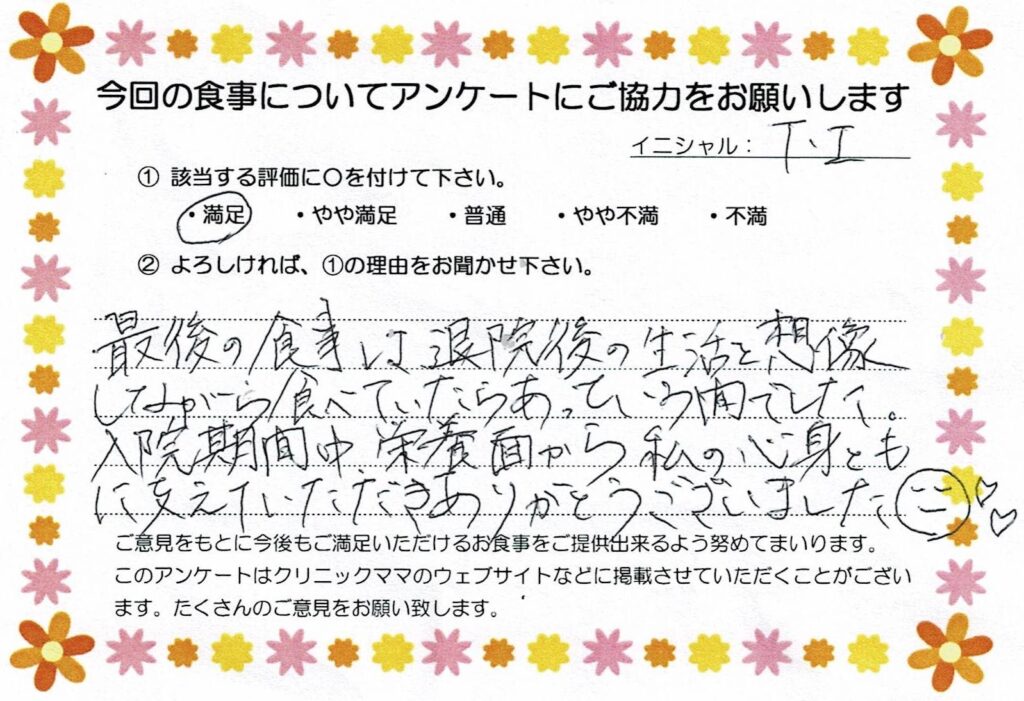 今回の食事についてアンケートにご協力をお願いします
イニシャル： T.I
① 該当する評価に〇を付けて下さい。
・満足 ・やや満足 ・普通 ・やや不満 ・不満
② よろしければ、①の理由をお聞かせ下さい。
最後の食事は退院後の生活を想像
しながら食べていたらあっという間でした。
入院期間中、栄養面から私の心身とも
に支えていただきありがとうございました
ご意見をもとに今後もご満足いただけるお食事をご提供出来るよう努めてまいります。
このアンケートはクリニックママのウェブサイトなどに掲載させていただくことがござい
ます。たくさんのご意見をお願い致します。